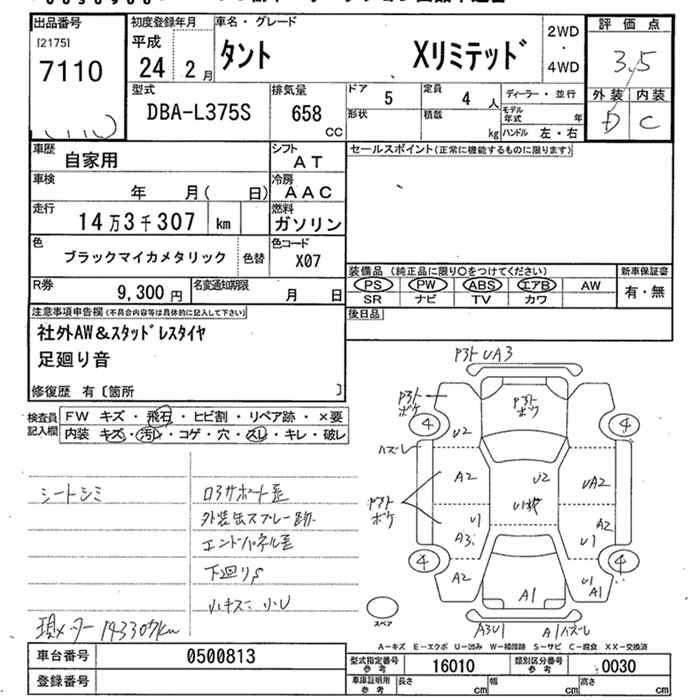 出品番号
[2175]
7110
初度登録年月
平成
24 2月
車名・グレード
タント Xリミテッド
2WD
・
4WD
評価点
3.5
外装 内装
D C
型式
DBA-L375S
排気量
658
CC
ドア
5
定員
4 人
ディーラー・並行
形状
積載
kg
モデル年式 年
ハンドル 左・右
車歴
自家用
シフト
AT
セールスポイント(正常に機能するものに限ります)
車検
年 月( 日)
冷房
AAC
走行
14万3千307 km
燃料
ガソリン
色
ブラックマイカメタリック
色替
色コード
X07
装備品(純正品に限り○をつけてください)
新車保証書
PS PW ABS エアB AW
SR ナビ TV カワ
有・無
R券
9,300円
名変通知期限
月 日
後日品
注意事項申告欄(不具合内容等は具体的に記入して下さい)
社外AW&スタッドレスタイヤ
足廻り音
修復歴 有〔箇所 〕
検査員記入欄
FW キズ・飛石・ヒビ割・リペア跡・×要
内装 キズ・汚レ・コゲ・穴・スレ・キレ・破レ
シートシミ
ロアサポート歪
外装缶スプレー跡
エンドパネル歪
下廻りS
小キズ 小U
現メーター 143307km
P3ト UA3
P3ト
ボケ
P3ト
ボケ
4
4
U2
ハズレ
A2
U2
UA2
P3ト
ボケ
U1
A2
A3
U1
4
4
A2
A1
U1
A1
スペア
A3U1
A1ハズレ
A-キズ E-エクボ U-凹み W-補修跡 S-サビ C-腐食 XX-交換済
車台番号
0500813
型式指定番号
参考
16010
類別区分番号
参考
0030
登録番号
車庫証明用
参考
長さ cm
幅 cm
高さ cm